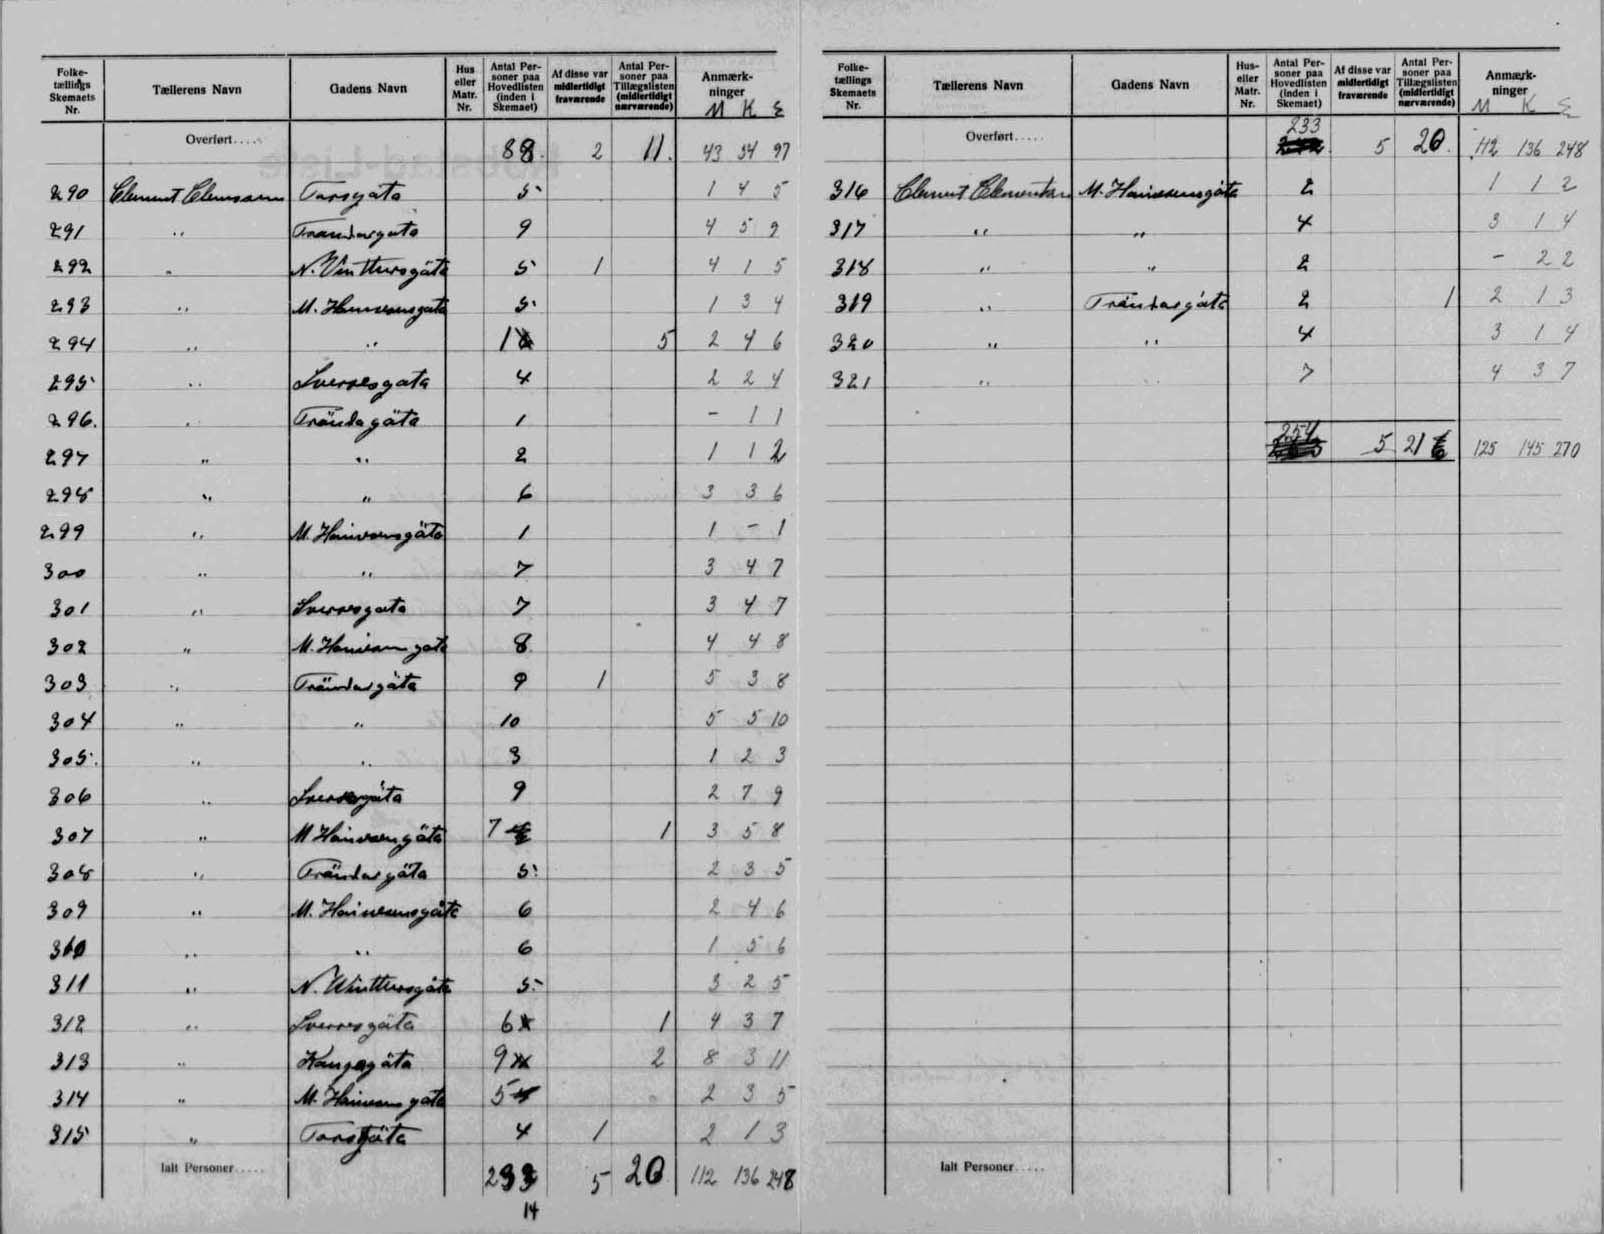 Folke-tællings Skemaets Nr. Tællerens Navn Gadens Navn Hus eller Matr. Nr. Antal Personer paa Hovedlisten (inden i Skemaet) Af disse var midlertidigt fraværende Antal Personer paa Tillægslisten (midlertidigt nærværende) Anmærkninger M K E
Overført..... 88. 2 11. 43 54 97
290 Clement Clemesen Torsgäta 5 1 4 5
291 " Trandargata 9 4 5 9
292 " N. Vinthersgäta 5 1 4 1 5
293 " M. Heinesensgata 5 1 3 4
294 " " 1 5 2 4 6
295 " Sverresgata 4 2 2 4
296. " Trändagäta 1 - 1 1
297 " " 2 1 1 2
298 " " 6 3 3 6
299 " M. Heinesensgäta 1 1 - 1
300 " " 7 3 4 7
301 " Sverresgata 7 3 4 7
302 " M. Heinesensgata 8 4 4 8
303 " Trändargäta 9 1 5 3 8
304 " " 10 5 5 10
305. " " 3 1 2 3
306 " Sverresgäta 9 2 7 9
307 " M Heinesensgäta 7 1 3 5 8
308 " Trändargäta 5 2 3 5
309 " M. Heinesensgäta 6 2 4 6
310 " " 6 1 5 6
311 " N. Winthersgäta 5 3 2 5
312 " Sverresgäta 6 1 4 3 7
313 " Kongagäta 9 2 8 3 11
314 " M. Heinesensgata 5 2 3 5
315 " Torsgäta 4 1 2 1 3
Ialt Personer..... 233 5 20 112 136 248
14
Folke-tællings Skemaets Nr. Tællerens Navn Gadens Navn Hus- eller Matr. Nr. Antal Personer paa Hovedlisten (inden i Skemaet) Af disse var midlertidigt fraværende Antal Personer paa Tillægslisten (midlertidigt nærværende) Anmærkninger M K E
Overført..... 233 5 20. 112 136 248
316 Clement Clementsen M. Heinesensgäta 2 1 1 2
317 " " 4 3 1 4
318 " " 2 - 2 2
319 " Trändargäta 2 1 2 1 3
320 " " 4 3 1 4
321 " " 7 4 3 7
254 5 21 125 145 270
Ialt Personer.....